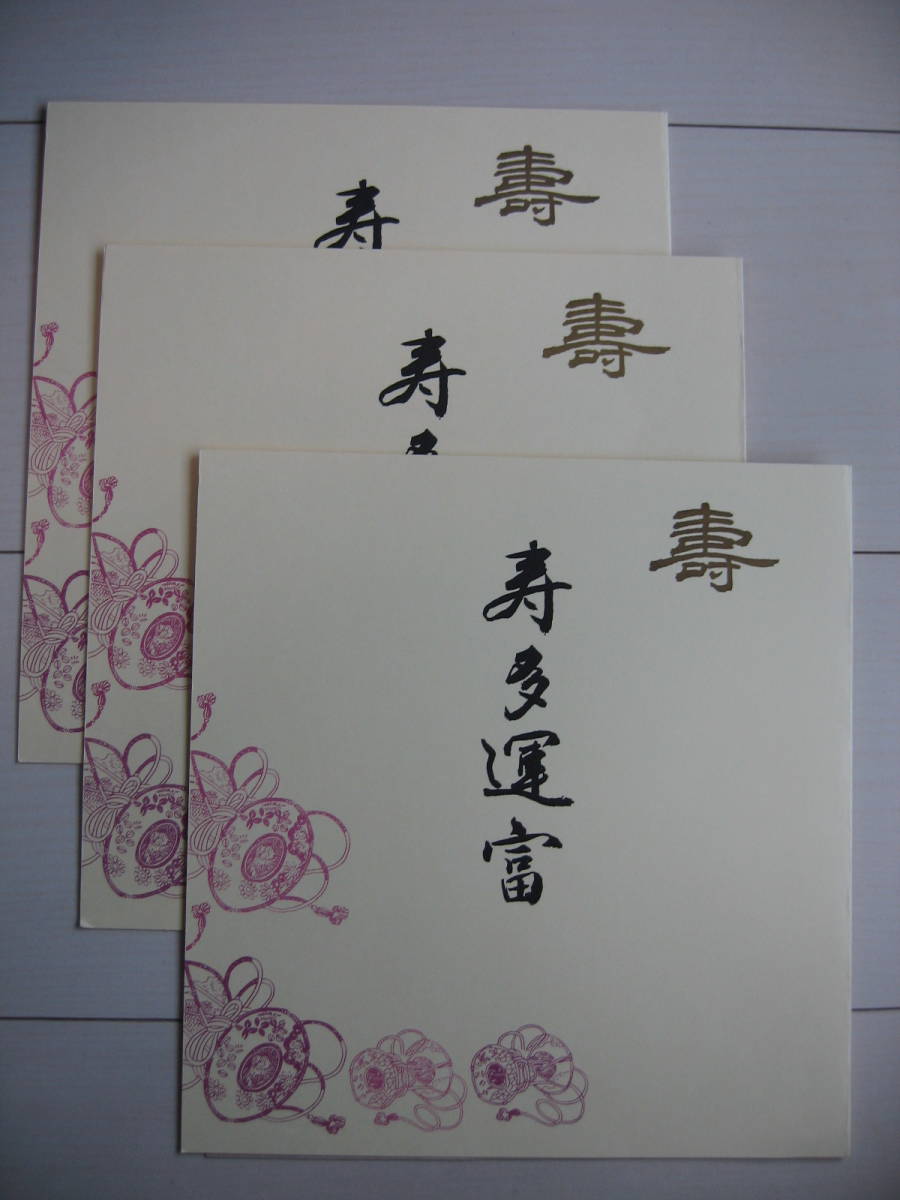 壽
寿
壽
寿多
壽
寿多運富